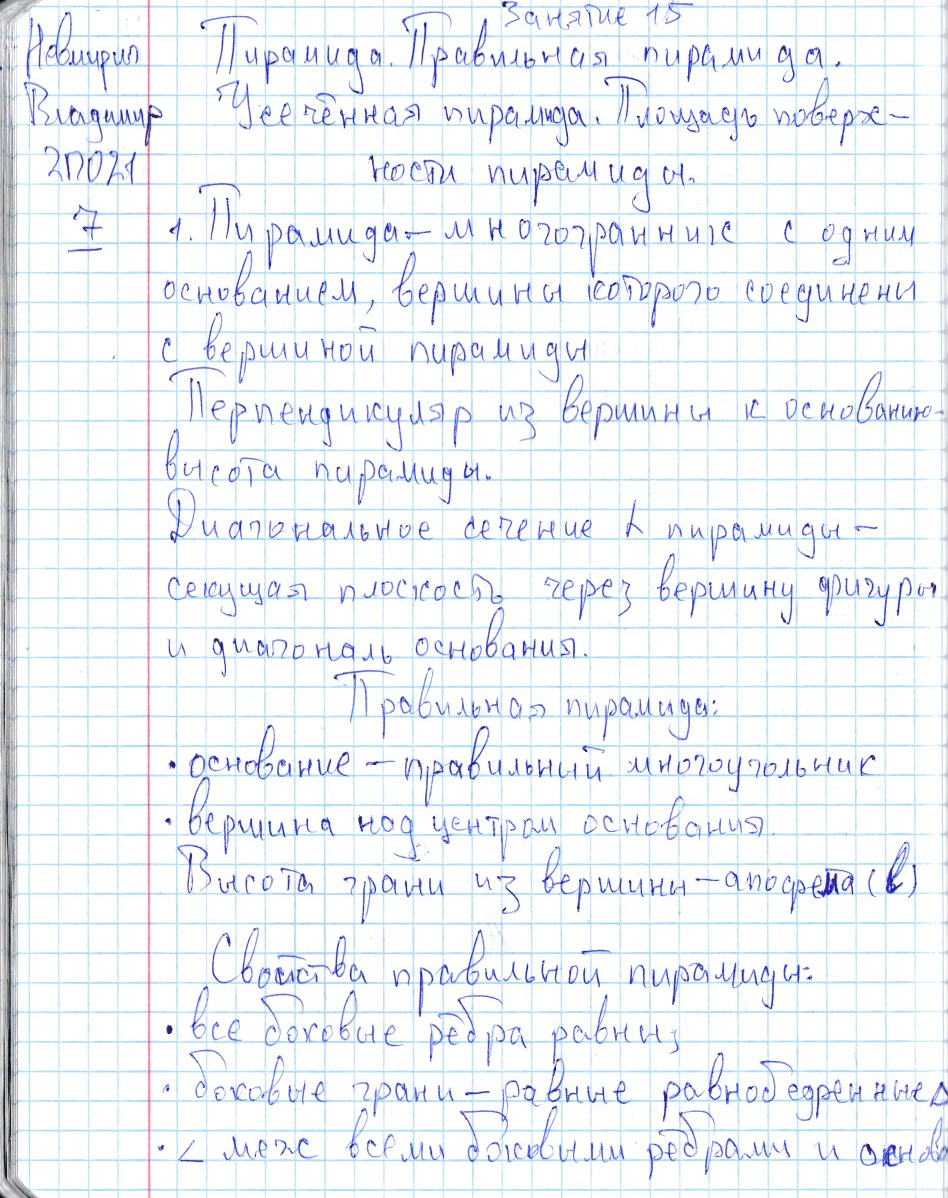 Занятие 15
Пирамида. Правильная пирамида.
Владимир Усечённая пирамида. Площадь поверх-
2П021 ности пирамиды.
7 1. Пирамида – многогранник с одним
основанием, вершины которого соединены
с вершиной пирамиды
Перпендикуляр из вершины к основанию-
высота пирамиды.
Диагональное сечение пирамиды –
секущая плоскость через вершину фигуры
и диагональ основания.
Правильная пирамида:
• основание – правильный многоугольник
• вершина над центром основания.
Высота грани из вершины – апофема (l)
Свойства правильной пирамиды:
• все боковые рёбра равны;
• боковые грани – равные равнобедренные Δ
• ∠ меж всеми боковыми рёбрами и основа